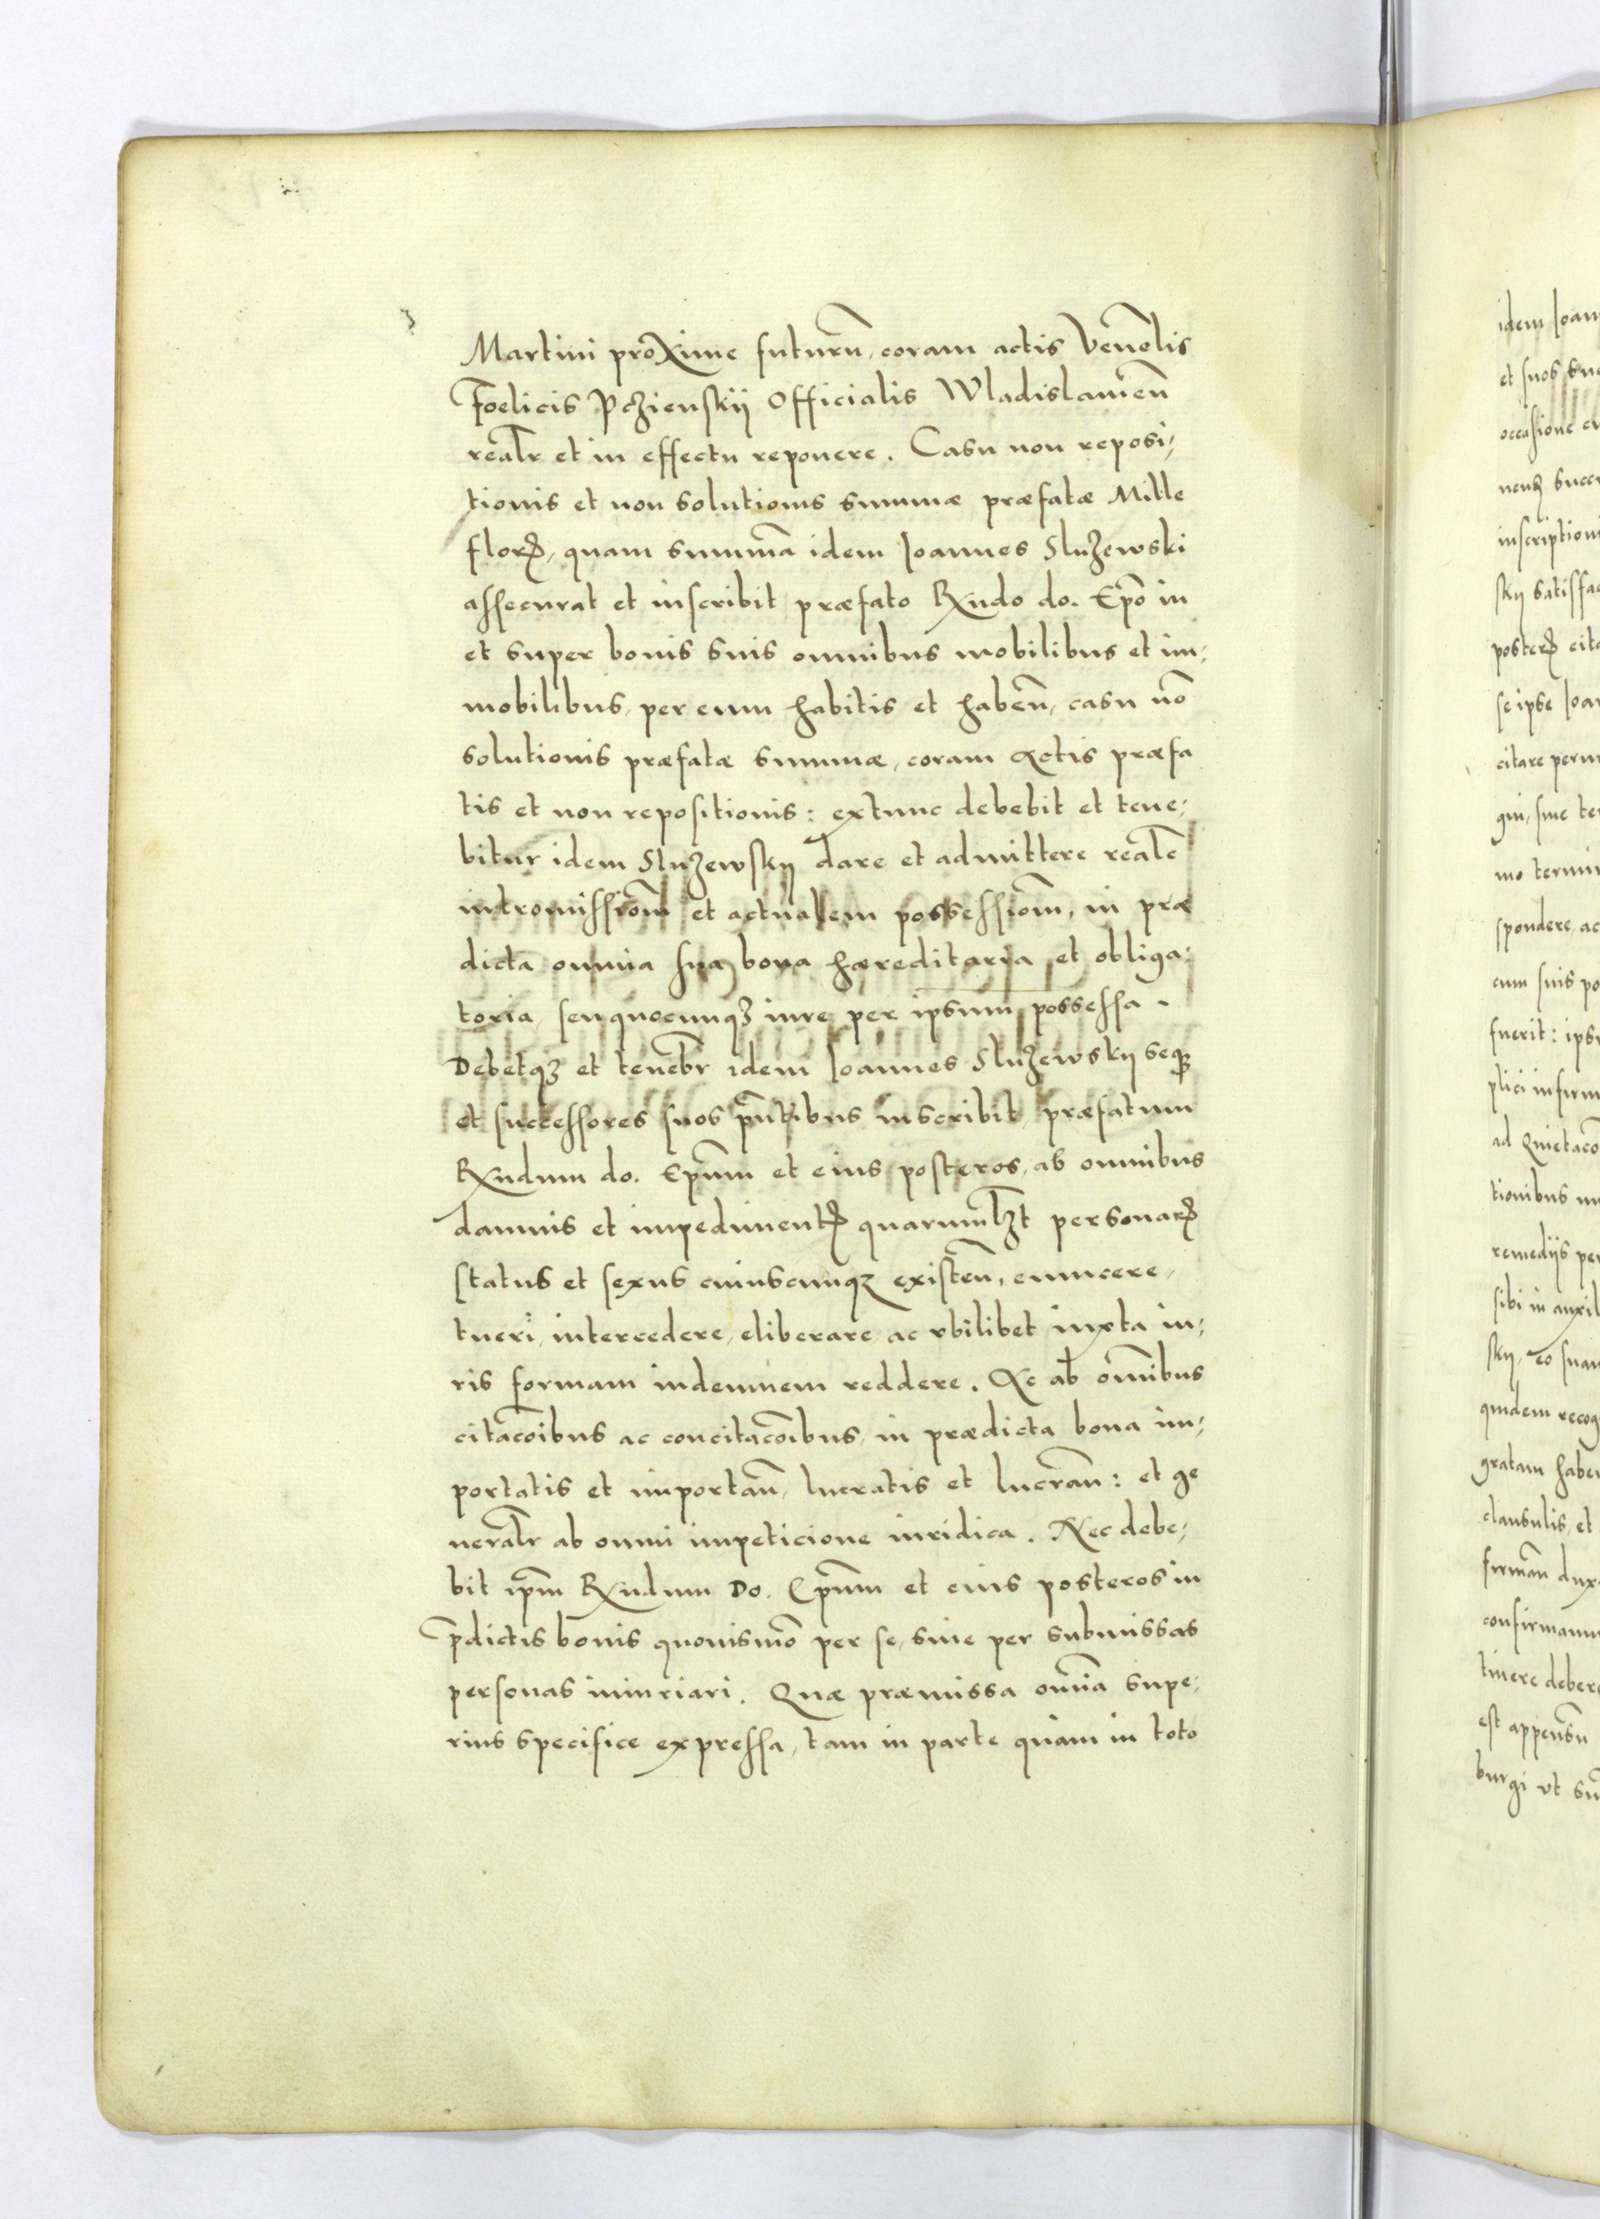 Martini proxime futurū, coram actis Venēlis
Foelicis Pczienskij Officialis Wladislauieñ
realr̄ et in effectu reponere. Casu non reposi,
tionis et non solutionis summæ præfatæ Mille
florꝝ, quam summā idem Ioannes Sluzewski
assecurat et inscribit præfato Rx̄ndo do. Ep̄o in
et super bonis suis omnibus mobilibus et im,
mobilibus, per eum habitis et habeñ, casu nō
solutionis præfatæ summæ, coram Actis præfa
tis et non repositionis: extunc debebit et tene,
bitur idem Sluzewskij dare et admittere realē
intromissioñm et actualem possessioñm, in præ
dicta omnia sua bona hæreditaria et obliga,
toria, seu quocunqꝫ iure per ipsum possessa.
Debetqꝫ et tenebr̄ idem Ioannes Sluzewskij seqꝫ
et successores suos pn̄tibus inscribit, præfatum
Rx̄ndum do. Ep̄um et eius posteros, ab omnibus
damnis et impedimentꝭ quarumlꝫt personarꝝ
status et sexus cuiuscunqꝫ existeñ, euincere,
tueri, intercedere, eliberare, ac vbilibet iuxta iu,
ris formam indemnem reddere. Ac ab om̄ibus
citac̄oibus ac concitac̄oibus, in prædicta bona im,
portatis et importañ, lucratis et lucrañ: et ge
neralr̄ ab omni impeticione iuridica. Nec debe,
bit ip̄m Rx̄ndum Do. Ep̄um et eius posteros in
p̄dictis bonis quouismō per se, siue per submissas
personas iniuriari. Quæ præmissa omn̄ia supe,
rius specifice expressa, tam in parte quam in toto
idem Ioan
et suos suc
occasione
inscription
skij satisfac
posterꝝ cita
se ipse Ioan
citare
qui, siue ter
mo termin
spondere, ac
cum suis po
fuerit: ips
plici infirm
ad Quietac̄o
tionibus
remedijs per
sibi in auxil
skij,
quidem recog
gratam haben
clausulis, et
firmañ dux
confirmamu
tinere debere
est appensū
burgi vt